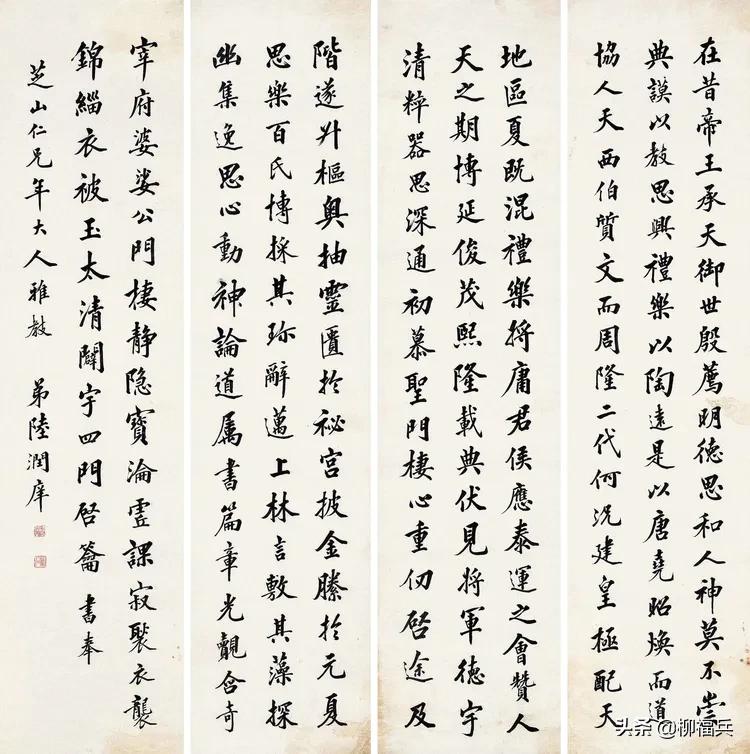 在昔帝王承天御世殷薦明德思和人神莫不崇
典謨以教思興禮樂以陶遠是以唐堯昭煥而道
協人天西伯質文而周隆二代何況建皇極配天
地區夏既混禮樂將庸君侯應泰運之會贊人
天之期博延俊茂熙隆載典伏見將軍德宇
清粹器思深通初慕聖門棲心重仞啓途及
階遂升樞奧抽靈匱於祕宮披金縢於元夏
思樂百氏博採其珍辭邁上林言敷其藻探
幽集逸思心動神論道屬書篇章光覿含奇
宰府婆娑公門棲靜隐寶淪虛課寂褧衣襲
錦緇衣被玉太清闢宇四門啓籥 書奉
芝山仁兄年大人雅教 弟陸潤庠
头条 @柳福兵